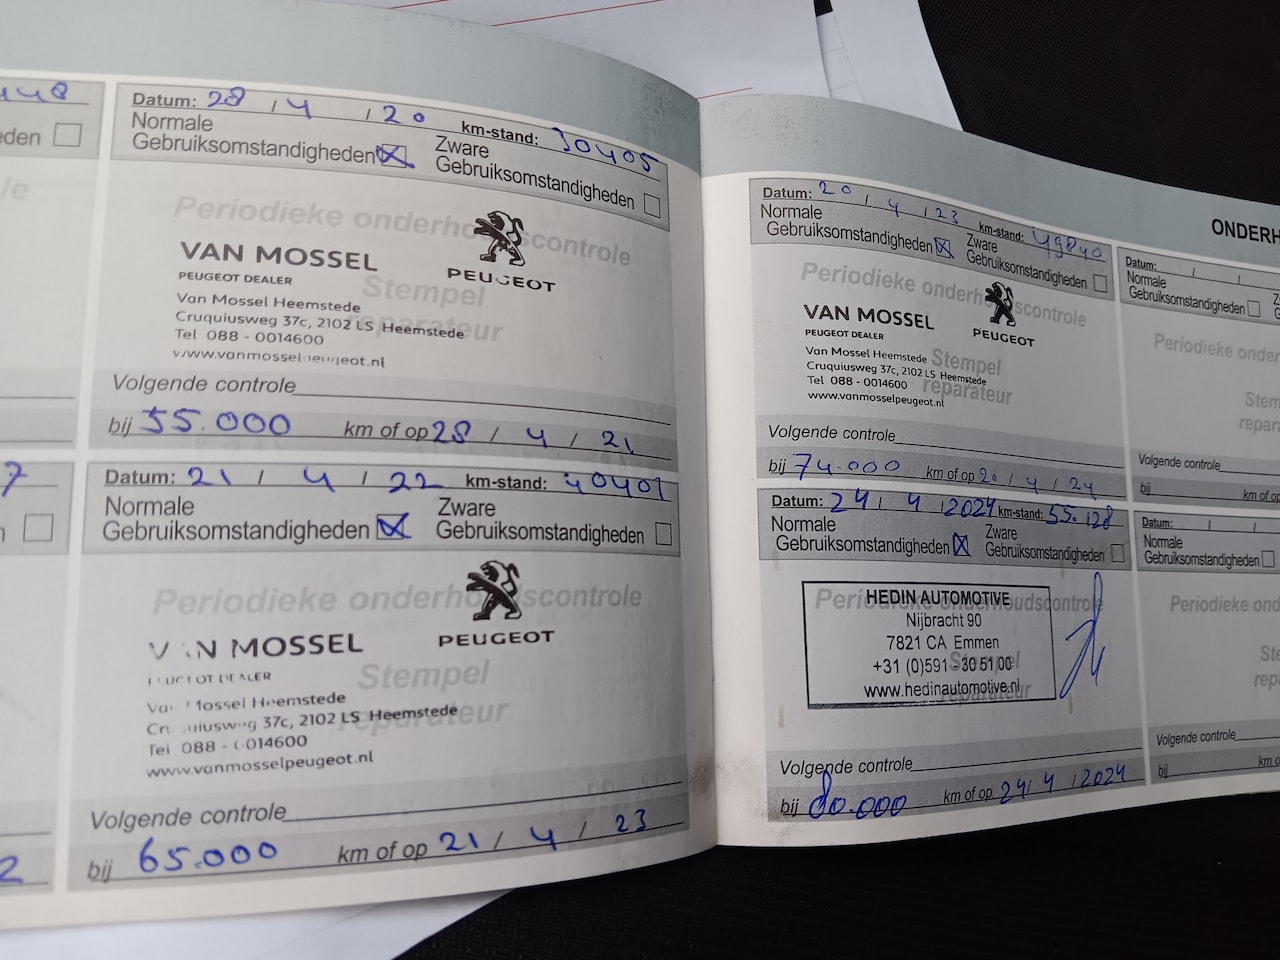 Datum: 28 / 4 / 20 km-stand: 30405
Normale
Gebruiksomstandigheden
Zware
Gebruiksomstandigheden
Periodieke onderhoudscontrole
VAN MOSSEL
PEUGEOT DEALER
PEUGEOT
Stempel
reparateur
Van Mossel Heemstede
Cruquiusweg 37c, 2102 LS Heemstede
Tel 088 - 0014600
www.vanmosselpeugeot.nl
Volgende controle
bij 55.000 km of op 28 / 4 / 21
Datum: 21 / 4 / 22 km-stand: 40401
Normale
Gebruiksomstandigheden
Zware
Gebruiksomstandigheden
Periodieke onderhoudscontrole
VAN MOSSEL
PEUGEOT DEALER
PEUGEOT
Stempel
reparateur
Van Mossel Heemstede
Cruquiusweg 37c, 2102 LS Heemstede
Tel 088 - 0014600
www.vanmosselpeugeot.nl
Volgende controle
bij 65.000 km of op 21 / 4 / 23
ONDERH
Datum: 20 / 4 / 23 km-stand: 49840
Normale
Gebruiksomstandigheden
Zware
Gebruiksomstandigheden
Periodieke onderhoudscontrole
VAN MOSSEL
PEUGEOT DEALER
PEUGEOT
Stempel
reparateur
Van Mossel Heemstede
Cruquiusweg 37c, 2102 LS Heemstede
Tel 088 - 0014600
www.vanmosselpeugeot.nl
Volgende controle
bij 74.000 km of op 20 / 4 / 24
Datum: 24 / 4 / 2024 km-stand: 55.128
Normale
Gebruiksomstandigheden
Zware
Gebruiksomstandigheden
Periodieke onderhoudscontrole
Stempel
reparateur
HEDIN AUTOMOTIVE
Nijbracht 90
7821 CA Emmen
+31 (0)591 - 30 51 00
www.hedinautomotive.nl
Volgende controle
bij 80.000 km of op 24 / 4 / 2024
Datum: / /
Normale
Gebruiksomstandigheden
Periodieke onder
Stem
repara
Volgende controle
bij km of op
Datum: / /
Normale
Gebruiksomstandigheden
Periodieke onder
Volgende controle
bij km o